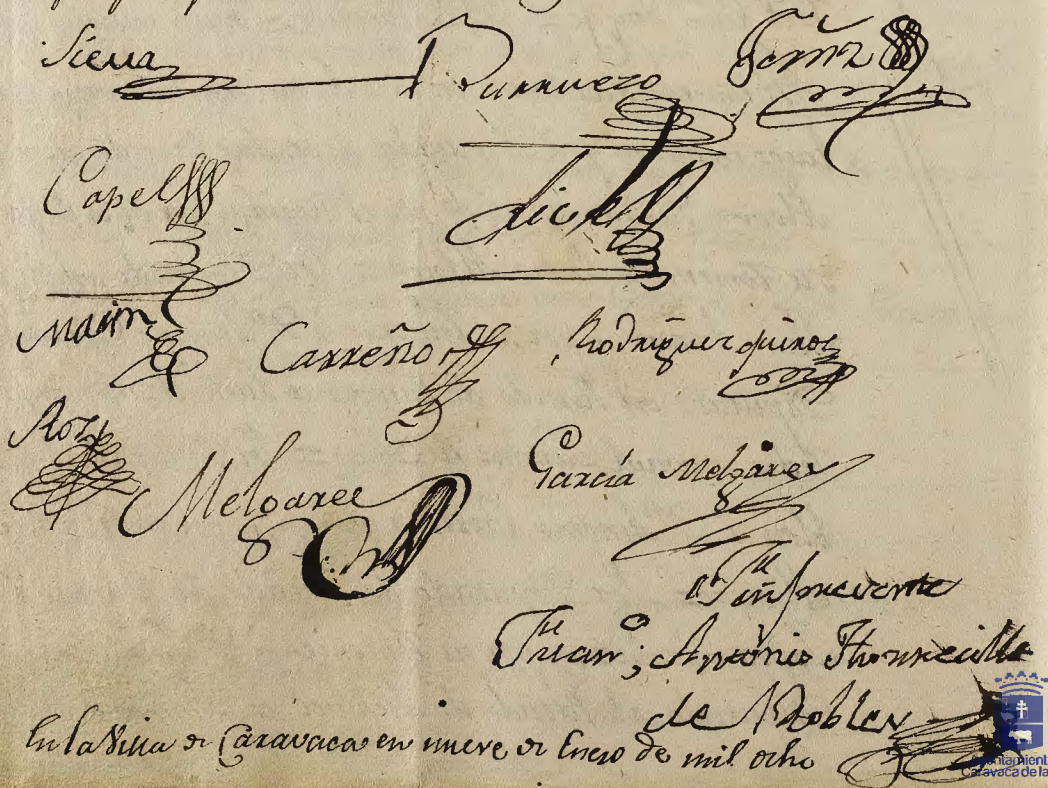 Sierra Burruezo Fernz
Capel
Marin Carreño Rodriguez quiros
Roz
Melgares Garcia Melgares
Fui presente
Juan Antonio Thorrecilla
de Robles
En la Villa de Caravaca en nueve de Enero de mil ocho
Ayuntamient
Caravaca de la